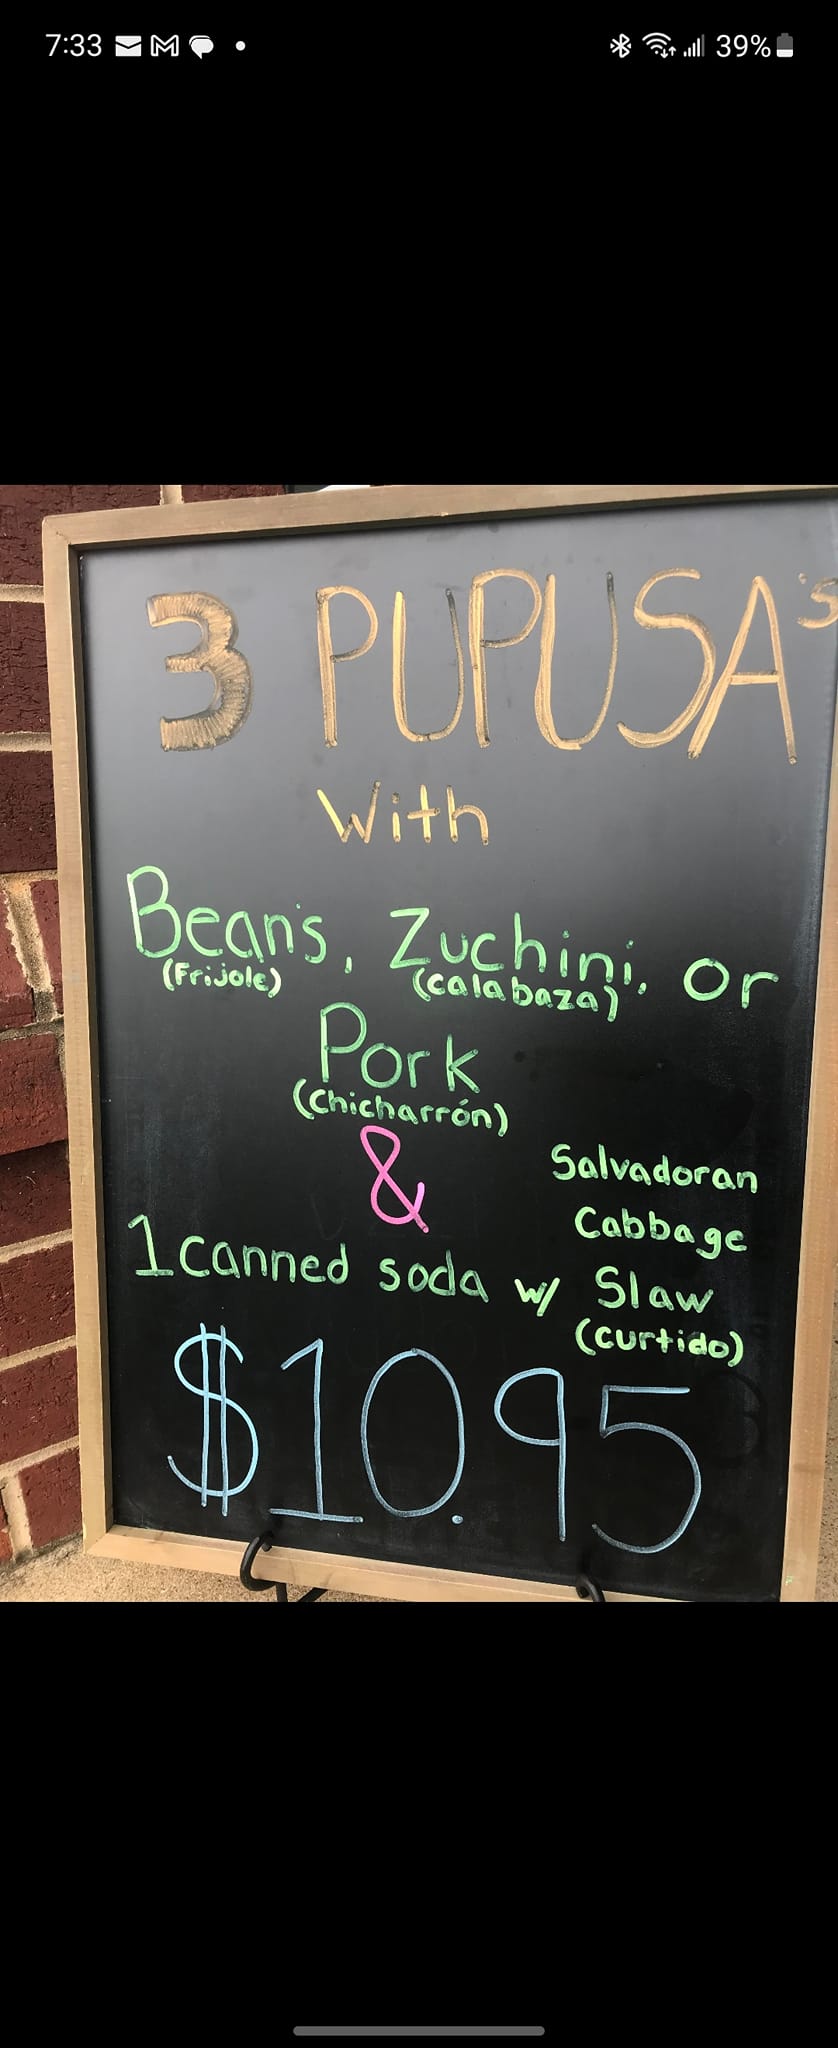 7:33
39%
3 PUPUSA's
With
Bean's, Zuchini, or
(Frijole) (calabaza)
Pork
(Chicharrón)
&
Salvadoran
Cabbage
1 canned soda w/ Slaw
(curtido)
$10.95